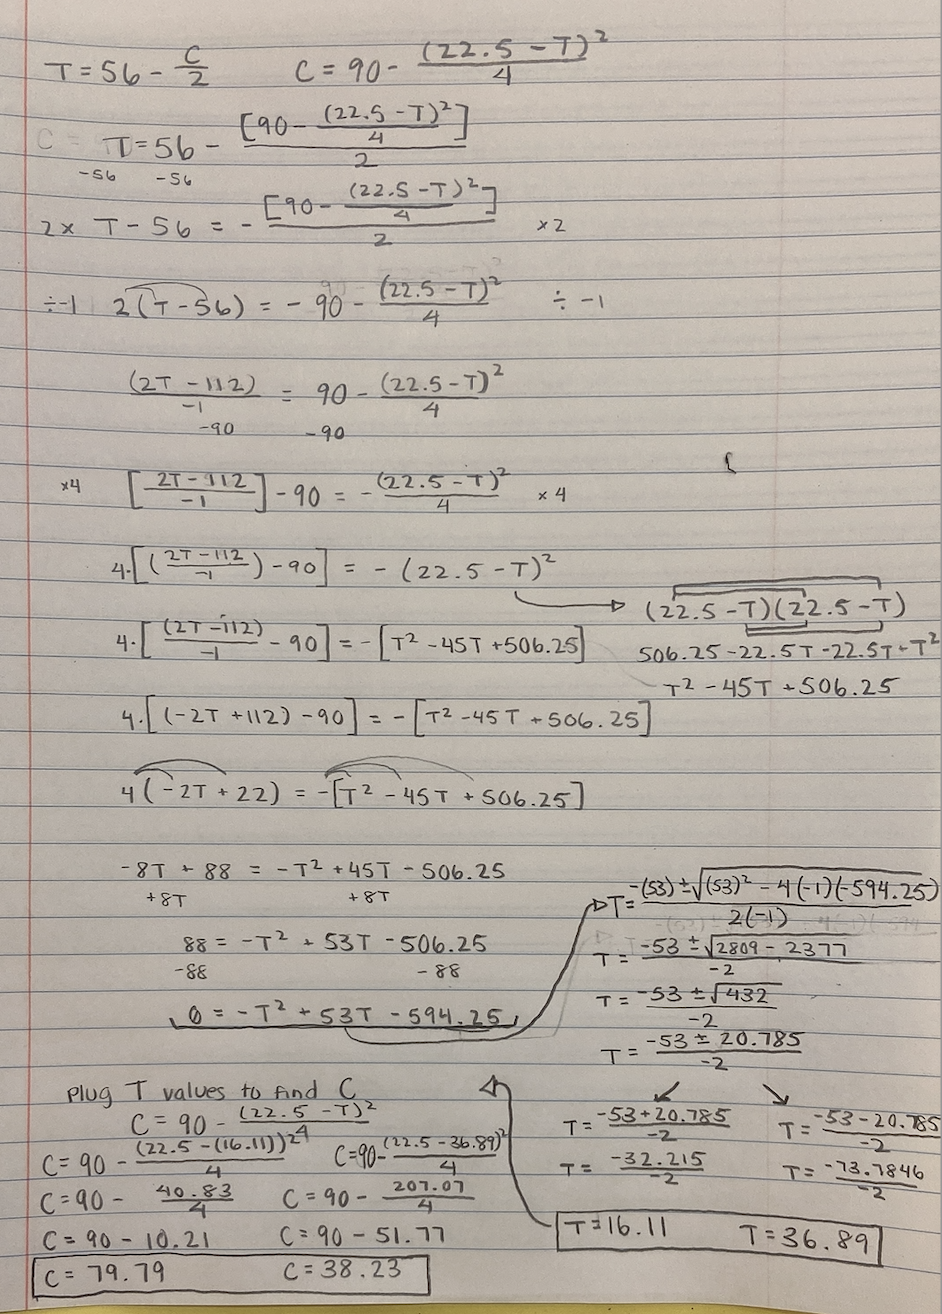 T = 56 - C/2    C = 90 - (22.5 - T)²/4
T = 56 - [90 - (22.5 - T)²/4]/2
-56    -56
2x  T - 56 = - [90 - (22.5 - T)²/4]/2    x2
÷-1  2(T - 56) = - 90 - (22.5 - T)²/4    ÷ -1
(2T - 112)/-1 = 90 - (22.5 - T)²/4
-90    -90
x4  [2T - 112/-1] - 90 = - (22.5 - T)²/4    x4
4·[(2T - 112/-1) - 90] = - (22.5 - T)²
(22.5 - T)(22.5 - T)
506.25 - 22.5T - 22.5T + T²
T² - 45T + 506.25
4·[(2T - 112)/-1 - 90] = - [T² - 45T + 506.25]
4·[(-2T + 112) - 90] = - [T² - 45T + 506.25]
4(-2T + 22) = -[T² - 45T + 506.25]
-8T + 88 = -T² + 45T - 506.25
+8T    +8T
88 = -T² + 53T - 506.25
-88    -88
0 = -T² + 53T - 594.25
T = -(53) ± √(53)² - 4(-1)(-594.25)/2(-1)
T = -53 ± √2809 - 2377/-2
T = -53 ± √432/-2
T = -53 ± 20.785/-2
T = -53 + 20.785/-2    T = -53 - 20.785/-2
T = -32.215/-2    T = -73.7846/-2
T = 16.11    T = 36.89
Plug T values to find C
C = 90 - (22.5 - T)²/4
C = 90 - (22.5 - (16.11))²/4    C = 90 - (22.5 - 36.89)²/4
C = 90 - 40.83/4    C = 90 - 207.07/4
C = 90 - 10.21    C = 90 - 51.77
C = 79.79    C = 38.23